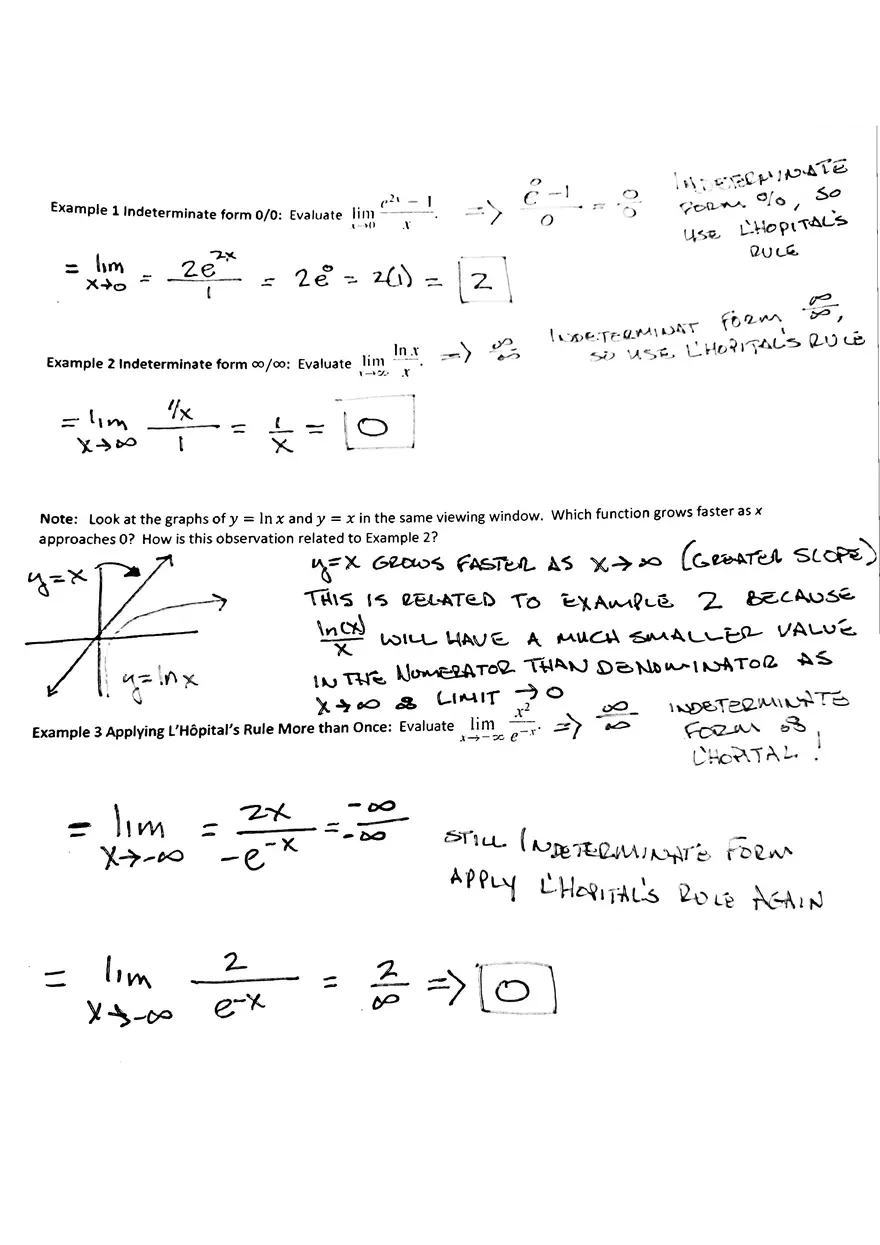 Example 1 Indeterminate form 0/0: Evaluate lim x→0 (e^2x − 1)/x. => (e^0 − 1)/0 = 0/0
INDETERMINATE
FORM 0/0, SO
USE L'HOPITAL'S
RULE
= lim x→0 = 2e^2x/1 = 2e^0 = 2(1) = 2
Example 2 Indeterminate form ∞/∞: Evaluate lim x→∞ ln x/x. => ∞/∞
INDETERMINAT FORM ∞/∞,
SO USE L'HOPITAL'S RULE
= lim x→∞ (1/x)/1 = 1/x = 0
Note: Look at the graphs of y = ln x and y = x in the same viewing window. Which function grows faster as x
approaches 0? How is this observation related to Example 2?
y=x
y=ln x
y=x GROWS FASTER AS x→∞ (GREATER SLOPE)
THIS IS RELATED TO EXAMPLE 2 BECAUSE
ln(x)/x WILL HAVE A MUCH SMALLER VALUE
IN THE NUMERATOR THAN DENOMINATOR AS
x→∞ & LIMIT → 0
Example 3 Applying L'Hôpital's Rule More than Once: Evaluate lim x→−∞ x^2/e^−x. => ∞/∞
INDETERMINATE
FORM
L'HOPITAL!
= lim x→−∞ = 2x/−e^−x = −∞/−∞
STILL INDETERMINATE FORM
APPLY L'HOPITAL'S RULE AGAIN
= lim x→−∞ 2/e^−x = 2/∞ => 0